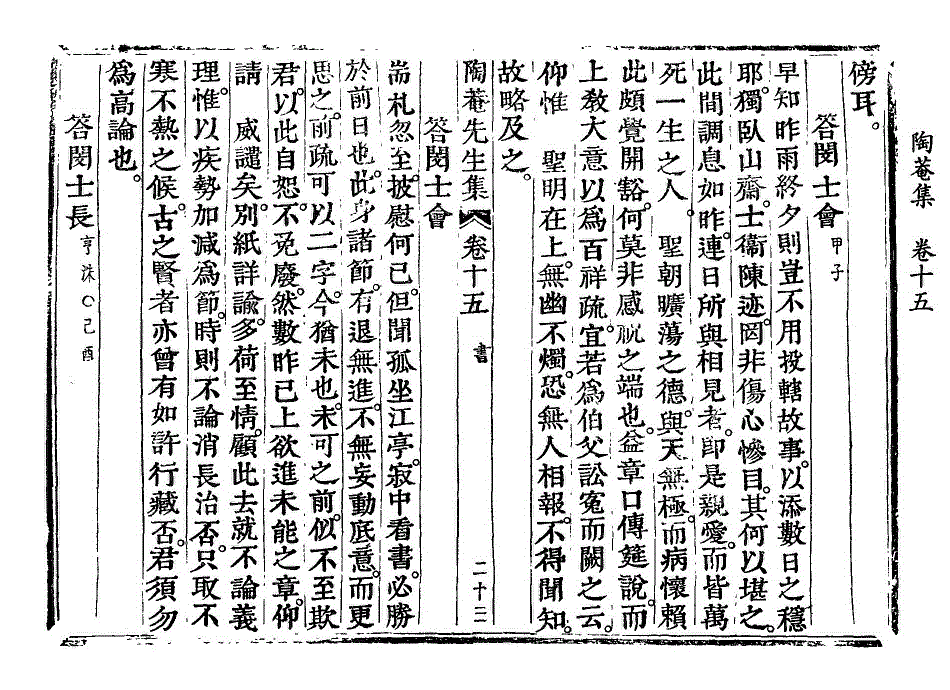 陶菴集 卷十五
傍耳。
答閔士會 甲子
早知昨雨終夕則豈不用投轄故事。以添數日之穩
耶。獨臥山齋。士衞陳迹。罔非傷心慘目。其何以堪之。
此間調息如昨。連日所與相見者。卽是親愛。而皆萬
死一生之人。 聖朝曠蕩之德。與天無極。而病懷賴
此頗覺開豁。何莫非感祝之端也。益章口傳筵說。而
上敎大意以爲百祥疏。宜若爲伯父訟寃而闕之云。
仰惟 聖明在上。無幽不燭。恐無人相報。不得聞知。
故略及之。
陶菴先生集 卷十五 書 二十三
答閔士會
耑札忽至。披慰何已。但聞孤坐江亭。寂中看書。必勝
於前日也。此身諸節。有退無進。不無妄動底意。而更
思之。前疏可以二字。今猶未也。未可之前。似不至欺
君。以此自恕。不免廢。然數昨已上欲進未能之章。仰
請 威譴矣。別紙詳諭。多荷至情。顧此去就不論義
理。惟以疾勢加減爲節。時則不論消長治否。只取不
寒不熱之候。古之賢者亦曾有如許行藏否。君須勿
爲高論也。
答閔士長 亨洙○己酉